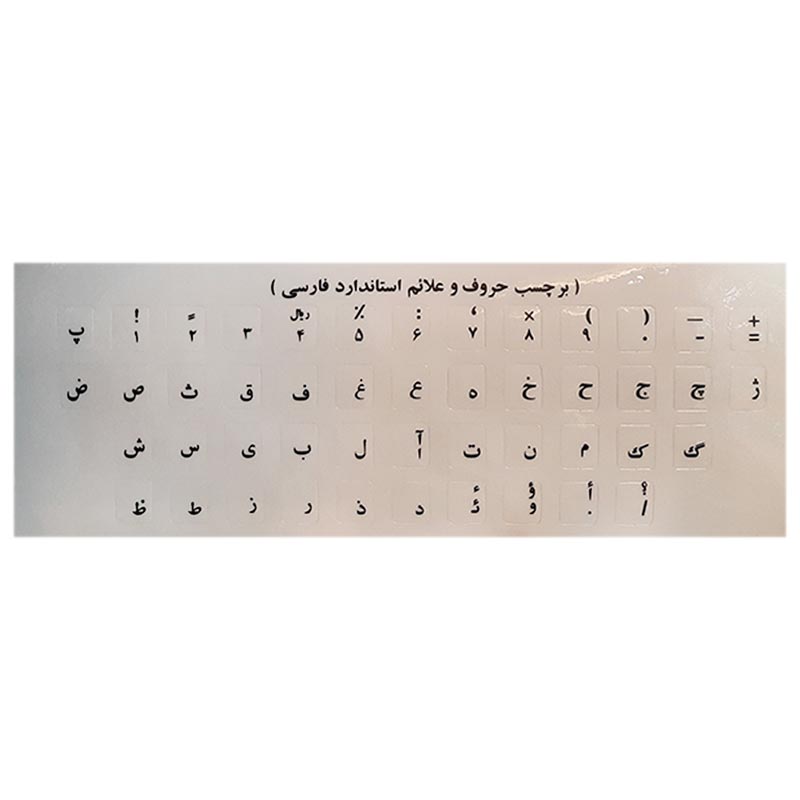 ( برچسب حروف و علائم استاندارد فارسی )
! = ریال ٪ : ، × ) ( — +
پ ۱ ۲ ۳ ۴ ۵ ۶ ۷ ۸ ۹ ۰ - =
ض ص ث ق ف غ ع ه خ ح ج چ ژ
ش س ی ب ل آ ا ت ن م ک گ
ظ ط ز ر ذ د ء ئ ؤ و أ . ؟ /